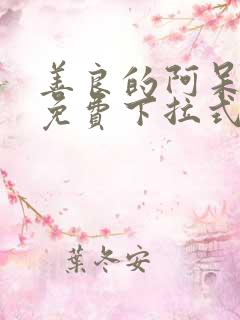 善良的阿呆
免費下拉式
葉冬安